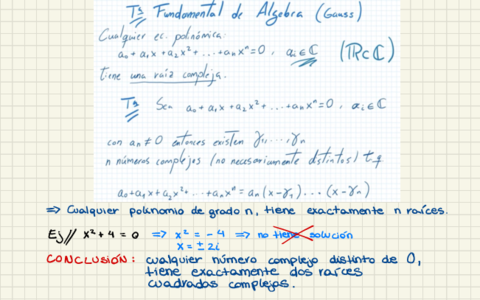 T.ª Fundamental de Algebra (Gauss)
Cualquier ec. polinómica
a₀+a₁x+a₂x²+...+aₙxⁿ=0, aᵢ∈ℂ (ℝ⊂ℂ)
tiene una raíz compleja.
T.ª Sea a₀+a₁x+a₂x²+...+aₙxⁿ=0, aᵢ∈ℂ
con aₙ≠0 entonces existen γ₁,...,γₙ
n números complejos (no necesariamente distintos) t.q
a₀+a₁x+a₂x²+...+aₙxⁿ=aₙ(x-γ₁)...(x-γₙ)
⇒ Cualquier polinomio de grado n, tiene exactamente n raíces.
Ej// x²+4=0 ⇒ x²=-4 ⇒ no tiene solución
x=±2i
CONCLUSIÓN: cualquier número complejo distinto de 0,
tiene exactamente dos raíces
cuadradas complejas.